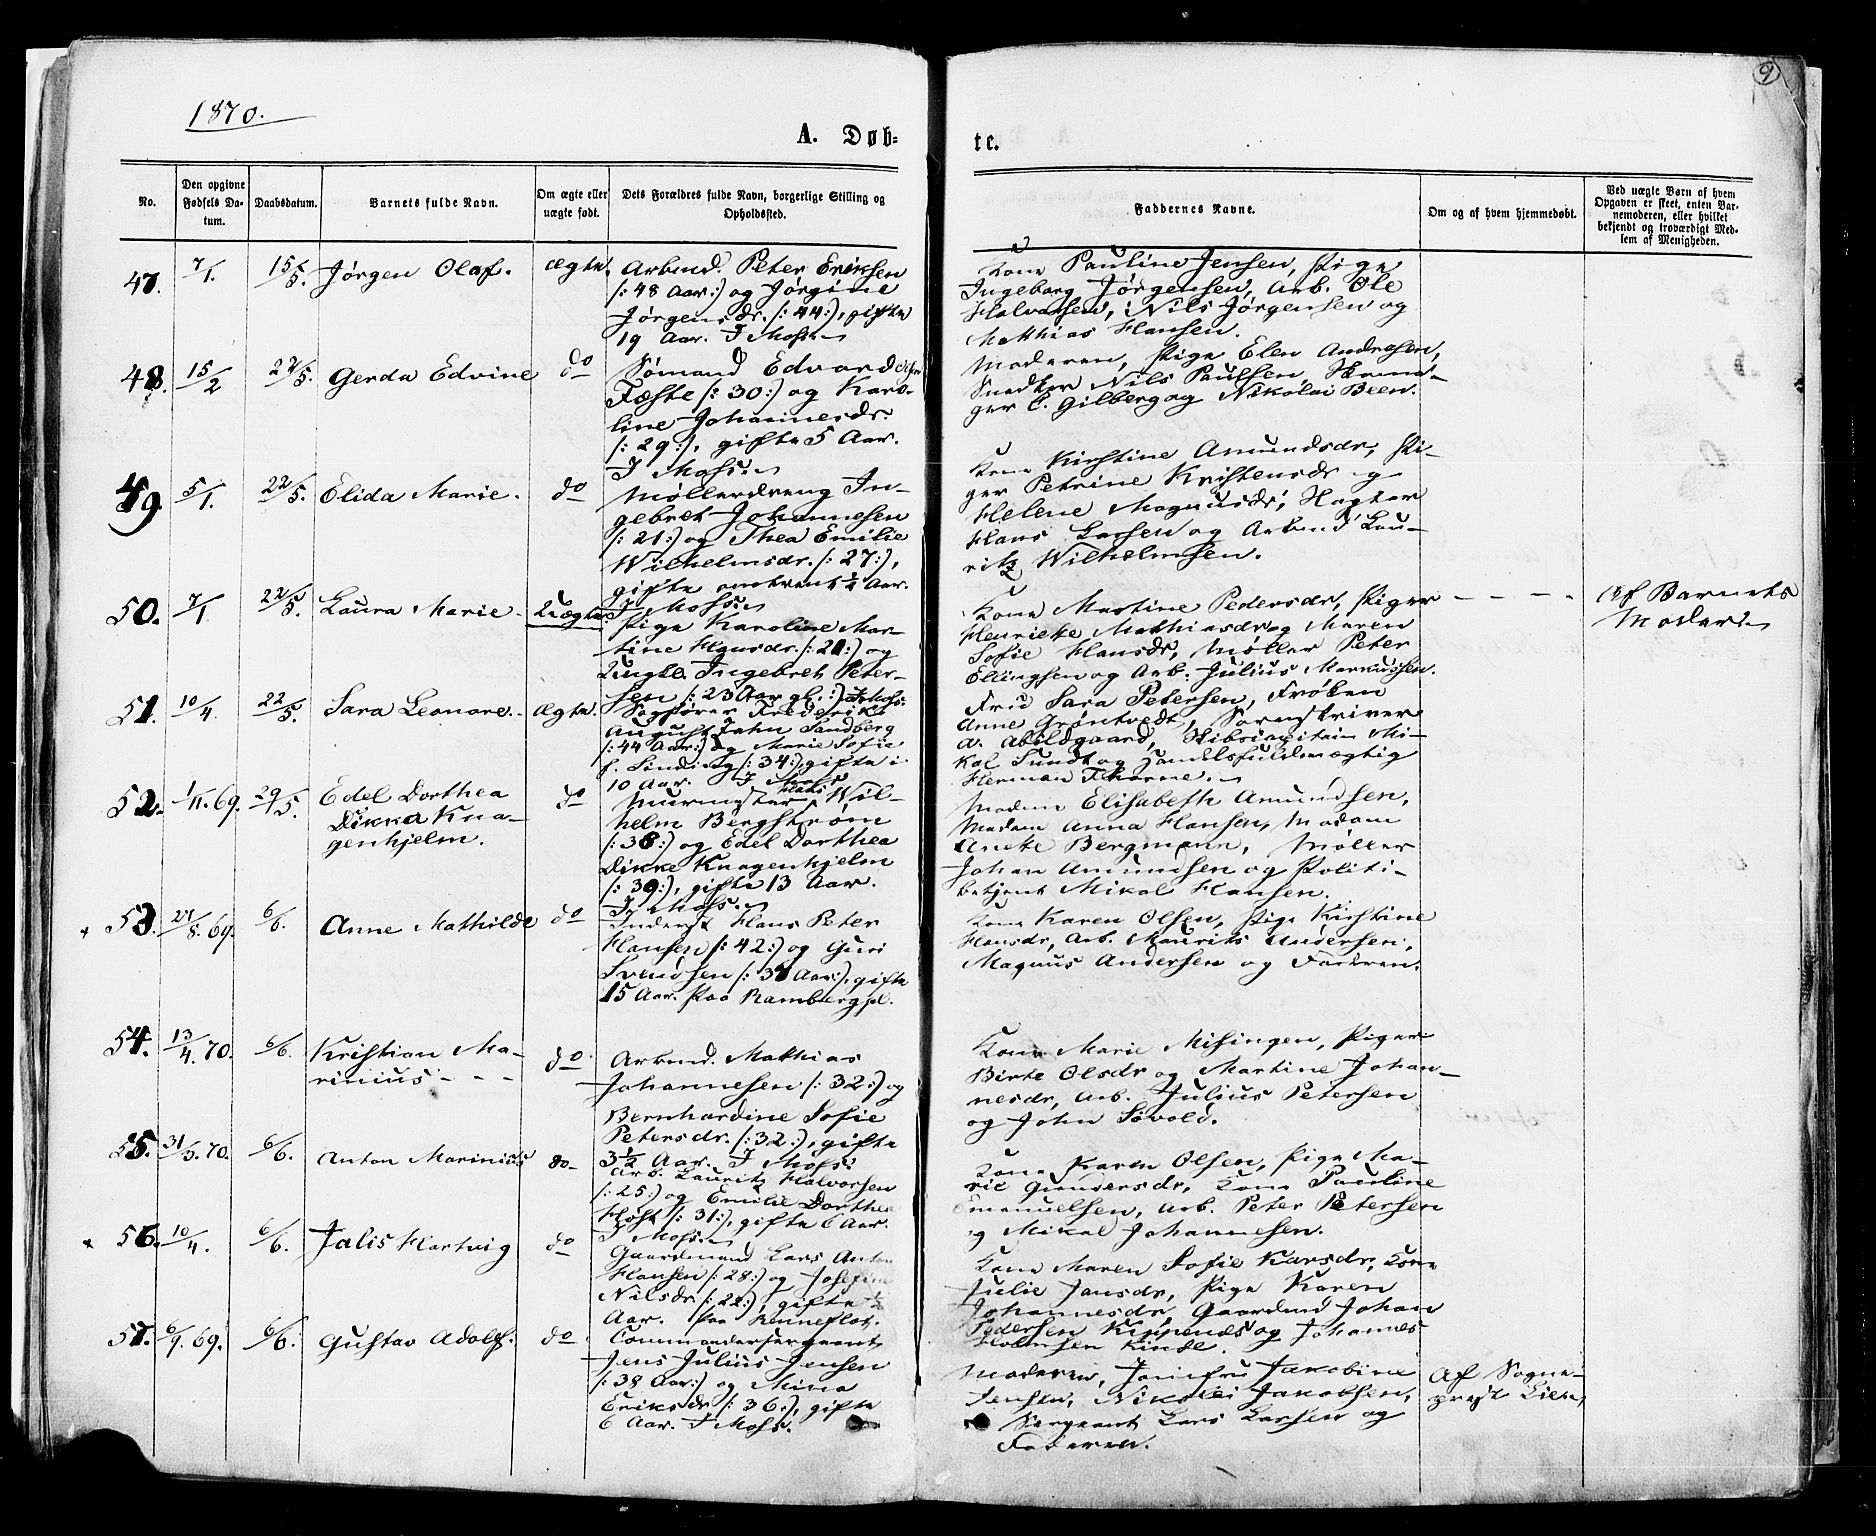 9
1870.
A. Døb=
te.
No.
Den opgivne
Fødsels Da-
tum.
Daabsdatum.
Barnets fulde Navn.
Om ægte eller
uægte født.
Dets Forældres fulde Navn, borgerlige Stilling og
Opholdssted.
Faddernes Navne.
Om og af hvem hjemmedøbt.
Ved uægte Børn af hvem
Opgaven er skeet, enten Bar-
nemoderen, eller hvilket
bekjendt og troværdigt Med-
lem af Menigheden.
47. 7/1. 15/5. Jørgen Olaf. ægte.
Arbmd. Peter Eriksen
/: 48 Aar:/ og Jørgine
Jørgensdr. /: 44:/, gifte
19 Aar. I Moss.
Kone Pauline Jensen, Pige
Ingeborg Jørgensen, Arb. Ole
Halvorsen, Nils Jørgensen og
Matthias Hansen.
48. 15/2 22/5. Gerda Edvine do
Sømand Edvard
Fæste /: 30:/ og Karo-
line Johannesdr.
/: 29:/, gifte 5 Aar.
I Moss.
Moderen, Pige Elen Andresen,
Snedker Nils Paulsen
ger C. Gilberg og Nikolai Been.
49. 5/1. 22/5. Elida Marie. do
Møllerdreng In-
gebret Johannesen
/: 21:/ og Thea Emilie
Wilhelmsdr. /: 27:/,
gifte omtrent 1/4 Aar.
I Moss.
Kone Kirstine Amundsdr, Pi-
ger Petrine Kristensdr og
Helene Magnusdr,
Hans Larsen og Arbmd Lau-
ritz Wilhelmsen.
50. 7/1 22/5. Laura Marie. Uægte
Pige Karoline Mar-
tine Hansdr. /: 21:/ og
Ungkl. Ingebret Peter-
sen /: 23 Aar gl.:/ I Moss.
Kone Martine Pedersdr, Piger
Henrikke Mathiasdr og Maren
Sofie Hansdr, Møller Peter
Ellingsen og Arb. Julius Markussen.
- - - -
Af Barnets
Moder.
51. 10/4. 22/5. Sara Leonore. ægte.
Sagfører Frederik
August John Sandberg
/: 44 Aar:/ og Marie Sofie
f. Sinding /: 34:/, gifte i
10 Aar. I Moss
Fru Sara Petersen, Frøken
Anne Grøntvedt, Sorenskriver
A. Abildgaard, Skibscapitain Mi-
kal Sundt og Handelsfuldmægtig
Herman Thorne.
52. 1/11. 69. 29/5. Edel Dorthea
Dikka Kna-
genhjelm. do
Murmester Mats Wil-
helm Bergstrøm
/: 36:/ og Edel Dorthea
Dikke Knagenhjelm
/: 39:/, gifte 13 Aar.
I Moss.
Madam Elisabeth Amundsen,
Madam Anna Hansen, Madam
Anete Bergmann, Møller
Johan Amundsen og Politi-
betjent Mikal Hansen.
+ 53. 27/8. 69. 6/6. Anne Mathilde do
Inderst Hans Peter
Hansen /: 42:/ og Guri
Svendsen /: 38 Aar:/, gifte
15 Aar. Paa Rambergpl.
Kone Karen Olsen, Pige Kirstine
Hansdr, Arb. Maurits Andersen,
Magnus Andersen og Faderen.
54. 13/4. 70. 6/6. Kristian Ma-
rinius - - - do.
Arbmd. Mathias
Johannesen /: 32:/ og
Bernhardine Sofie
Petersdr. /: 32:/, gifte
3 1/2 Aar. I Moss.
Kone Marie Misingen, Piger
Birte Olsdr og Martine Johan-
nesdr, Arb. Julius Petersen
og John Søvold.
55. 31/3. 70. 6/6. Anton Marinius do-
Arb. Lauritz Halvorsen
/: 25:/ og Emilie Dorthea
Høst /: 31:/, gifte 6 Aar.
I Moss.
Kone Karen Olsen, Pige Ma-
rie Gundersdr, Kone Pauline
Emanuelsen, Arb. Peter Petersen
og Mikal Johannesen.
56. 10/4. 6/6. Jalis Hartvig do
Gaardmand Lars Anton
Hansen /: 28:/ og Josefine
Nilsdr /: 22:/, gifte 1/2
Aar. Paa
Kone Maren Sofie Larsdr, Kone
Julie Jansdr, Pige Karen
Johannesdr, Gaardmd Johan
Pedersen Kippenes og Johannes
57. 6/9. 69. 6/6. Gustav Adolf. do
Commandersergeant
Jens Julius Jensen
/: 38 Aar:/ og Mina
Eriksdr /: 36:/, gifte
6 Aar. I Moss.
Moderen, Jomfru Jakobine
Jensen, Nikolai Jakobsen,
Sergeant Lars Larsen og
Faderen.
Af Sogne-
prest Lien,